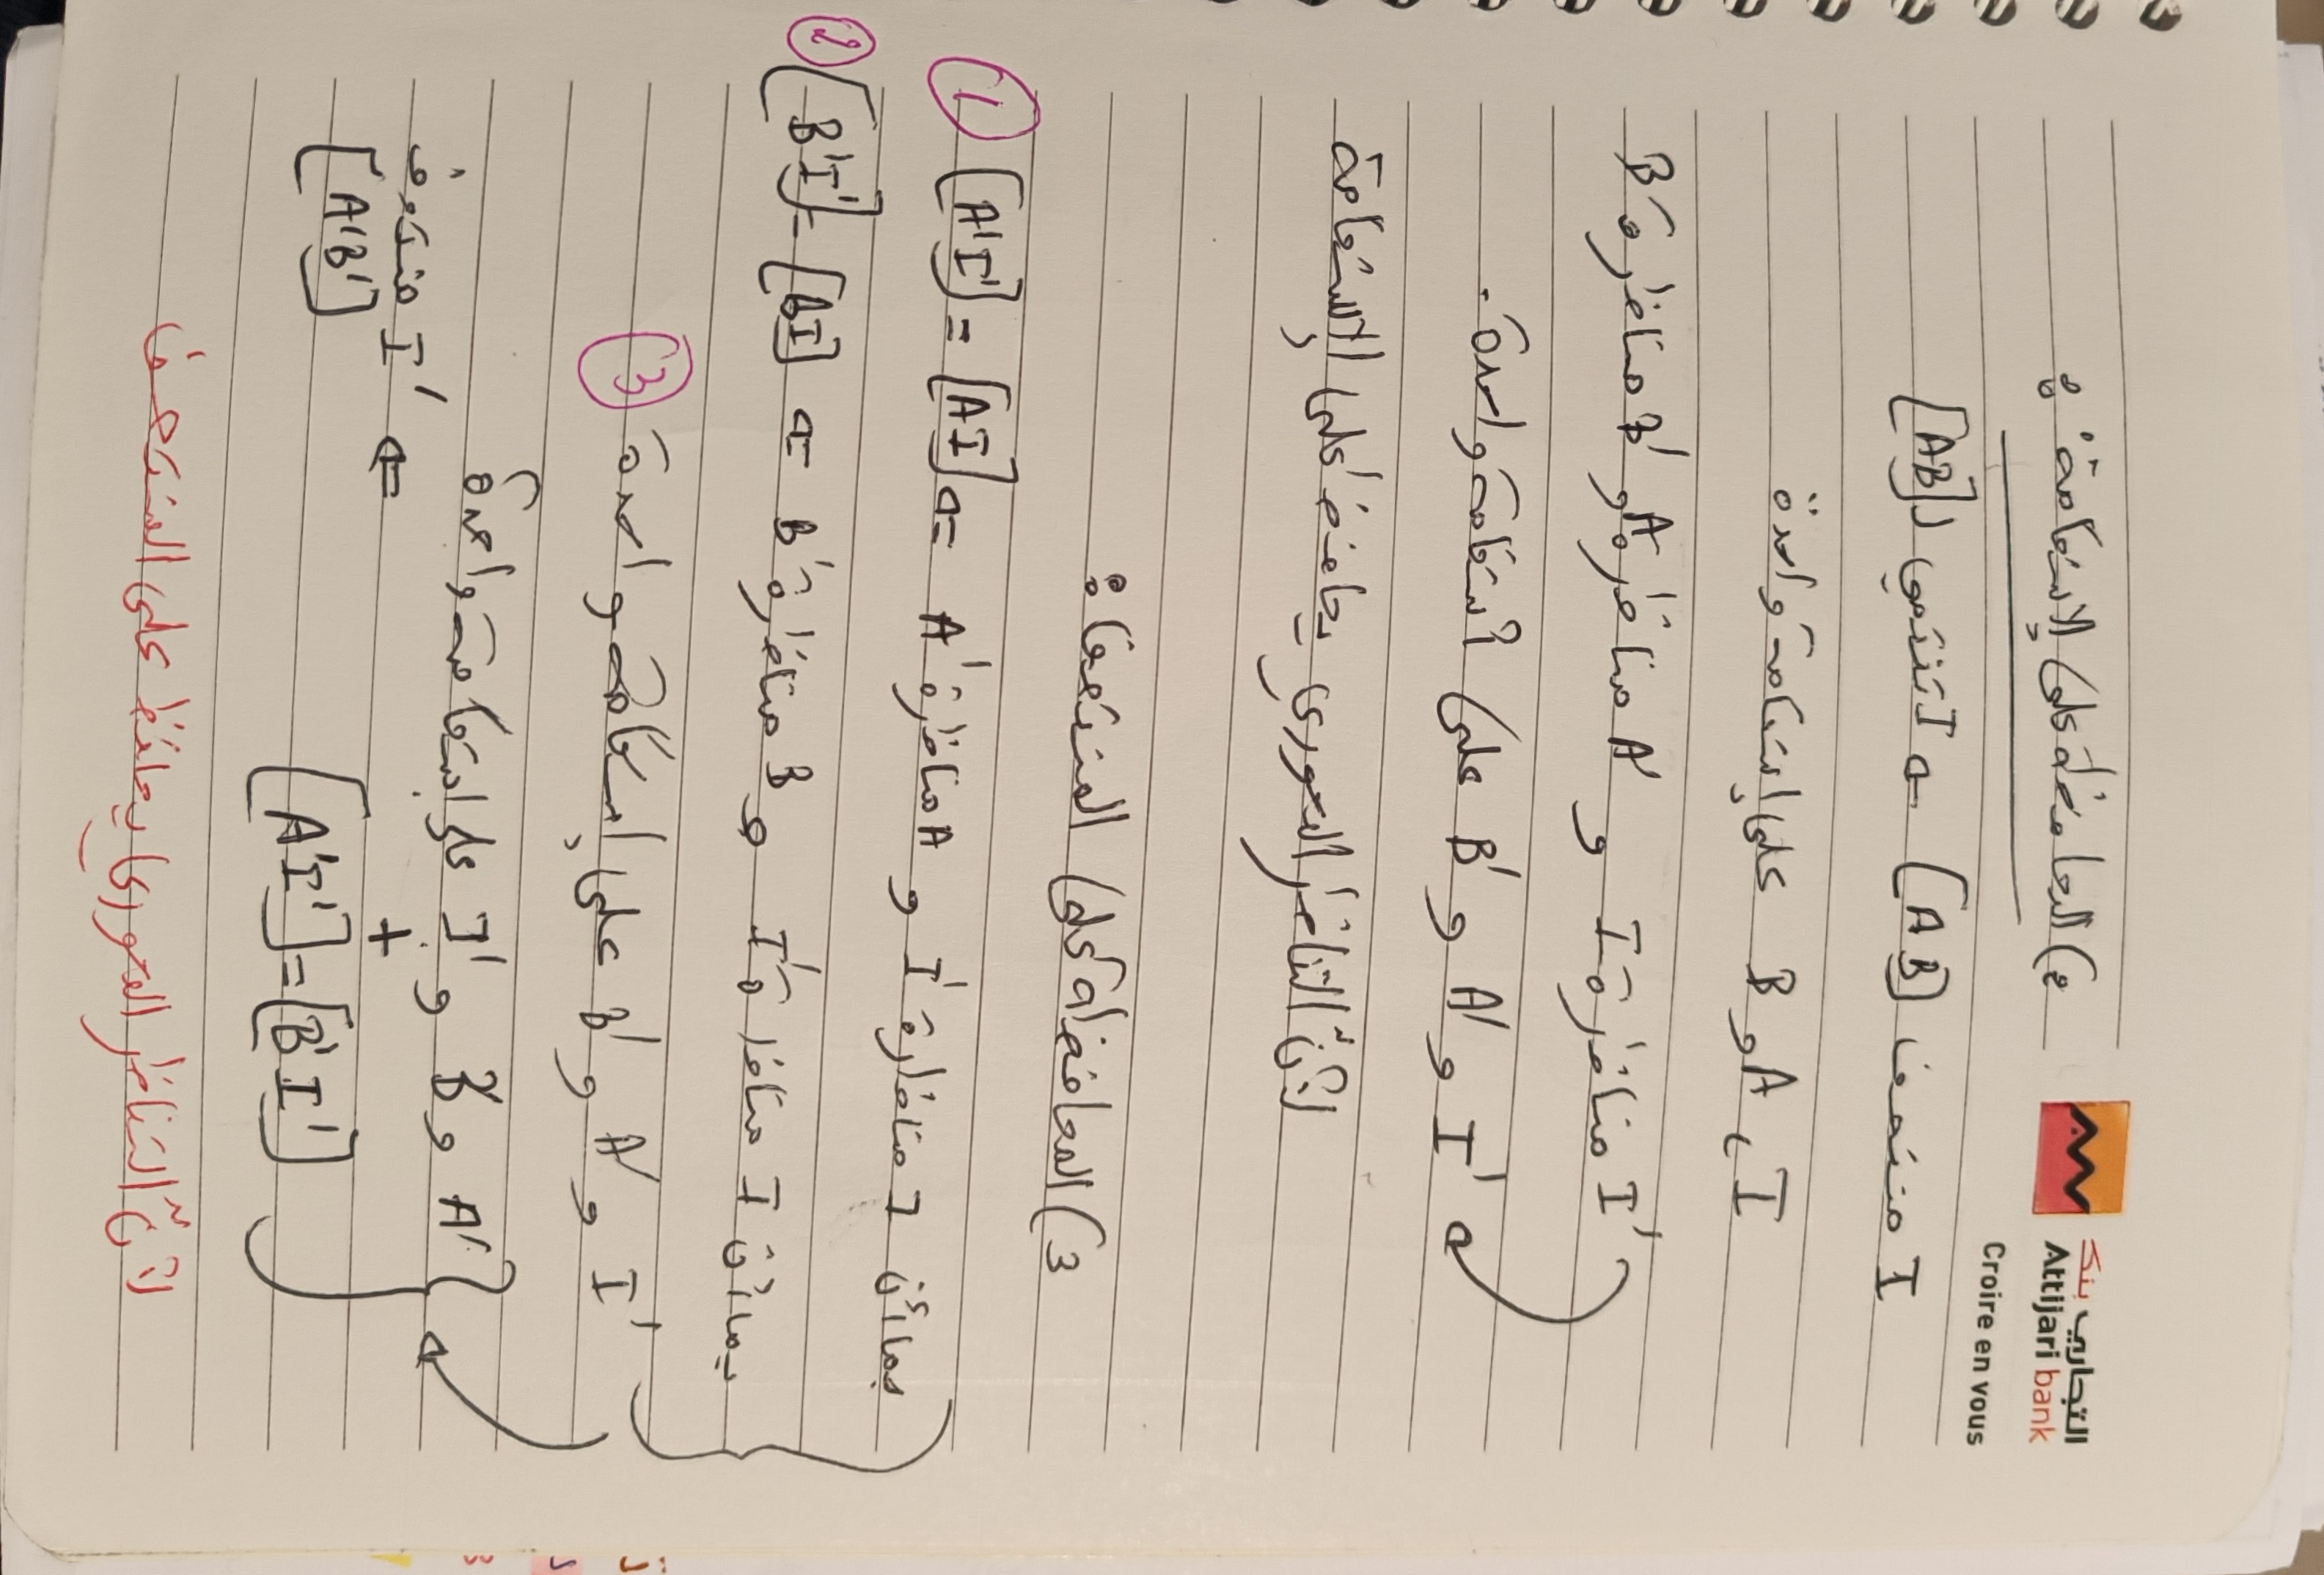 التجاري بنك
Attijari bank
Croire en vous
2) المحافظة على الإستقامة:
I منتصف [AB] ⇒ I تنتمي لـ [AB]
I، A و B على إستقامة واحدة
I' مناظرة I و A' مناظرة A و B' مناظرة B
I' و A' و B' على استقامة واحدة.
لأنّ التناظر المحوري يحافظ على الإستقامة
3) المحافظة على المنتصف:
بما أن I مناظرة I' و A مناظرة A' ⇐ [AI] = [A'I'] 1
بما أن I مناظرة I' و B مناظرة B' ⇐ [BI] = [B'I'] 2
I' و A' و B' على إستقامة واحدة 3
A' و B' و I' على إستقامة واحدة
+
[A'I'] = [B'I']
⇐ I' منتصف [A'B']
لأنّ التناظر المحوري يحافظ على المنتصف